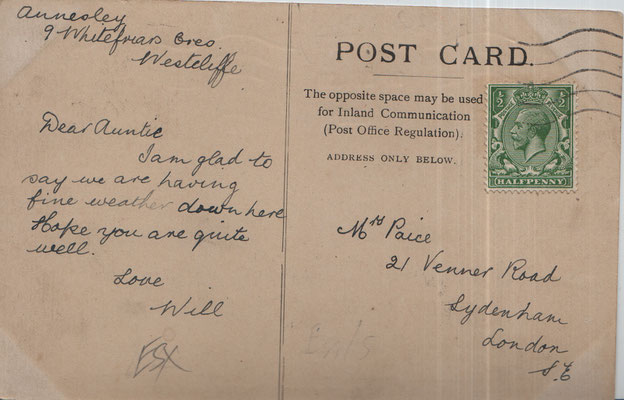 Annesley
9 Whitefriars Cres.
Westcliffe
Dear Auntie
I am glad to
say we are having
fine weather down here
Hope you are quite
well.
Love
Will
ESX
POST CARD.
The opposite space may be used
for Inland Communication
(Post Office Regulation).
ADDRESS ONLY BELOW.
½ ½
HALFPENNY
Mrs Paice
21 Venner Road
Sydenham
London
S.E